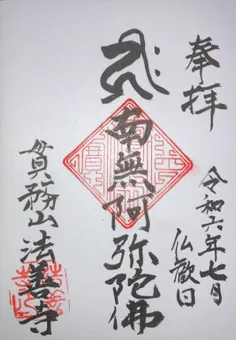 奉拝
令和六年七月
仏歓日
南無阿弥陀佛
法善寺